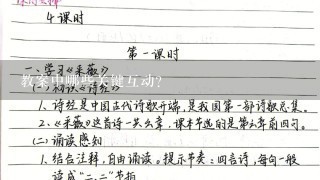 4课时
第一课时
一、学习《采薇》
教案中哪些关键互动?
(一)初识《诗经》
1. 诗经是中国古代诗歌开端,是我国第一部诗歌总集。
2.《采薇》这首诗一共六章,课本节选的是第六章前四句。
(二)诵读感知
1. 结合注释,自由诵读。提示节奏:四言诗,每句一般
读成“二、二”节拍